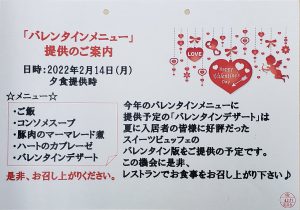 「バレンタインメニュー」
提供のご案内
日時：2022年2月14日(月)
夕食提供時
☆メニュー☆
・ご飯
・コンソメスープ
・豚肉のマーマレード煮
・ハートのカプレーゼ
・バレンタインデザート
是非、お召し上がりください。
LOVE
Happy
Valentine's
Day
今年のバレンタインメニューに
提供予定の「バレンタインデザート」は
夏に入居者の皆様に好評だった
スイーツビュッフェの
バレンタイン版をご提供の予定です。
この機会に是非、
レストランでお食事をお召し上がり下さい♪